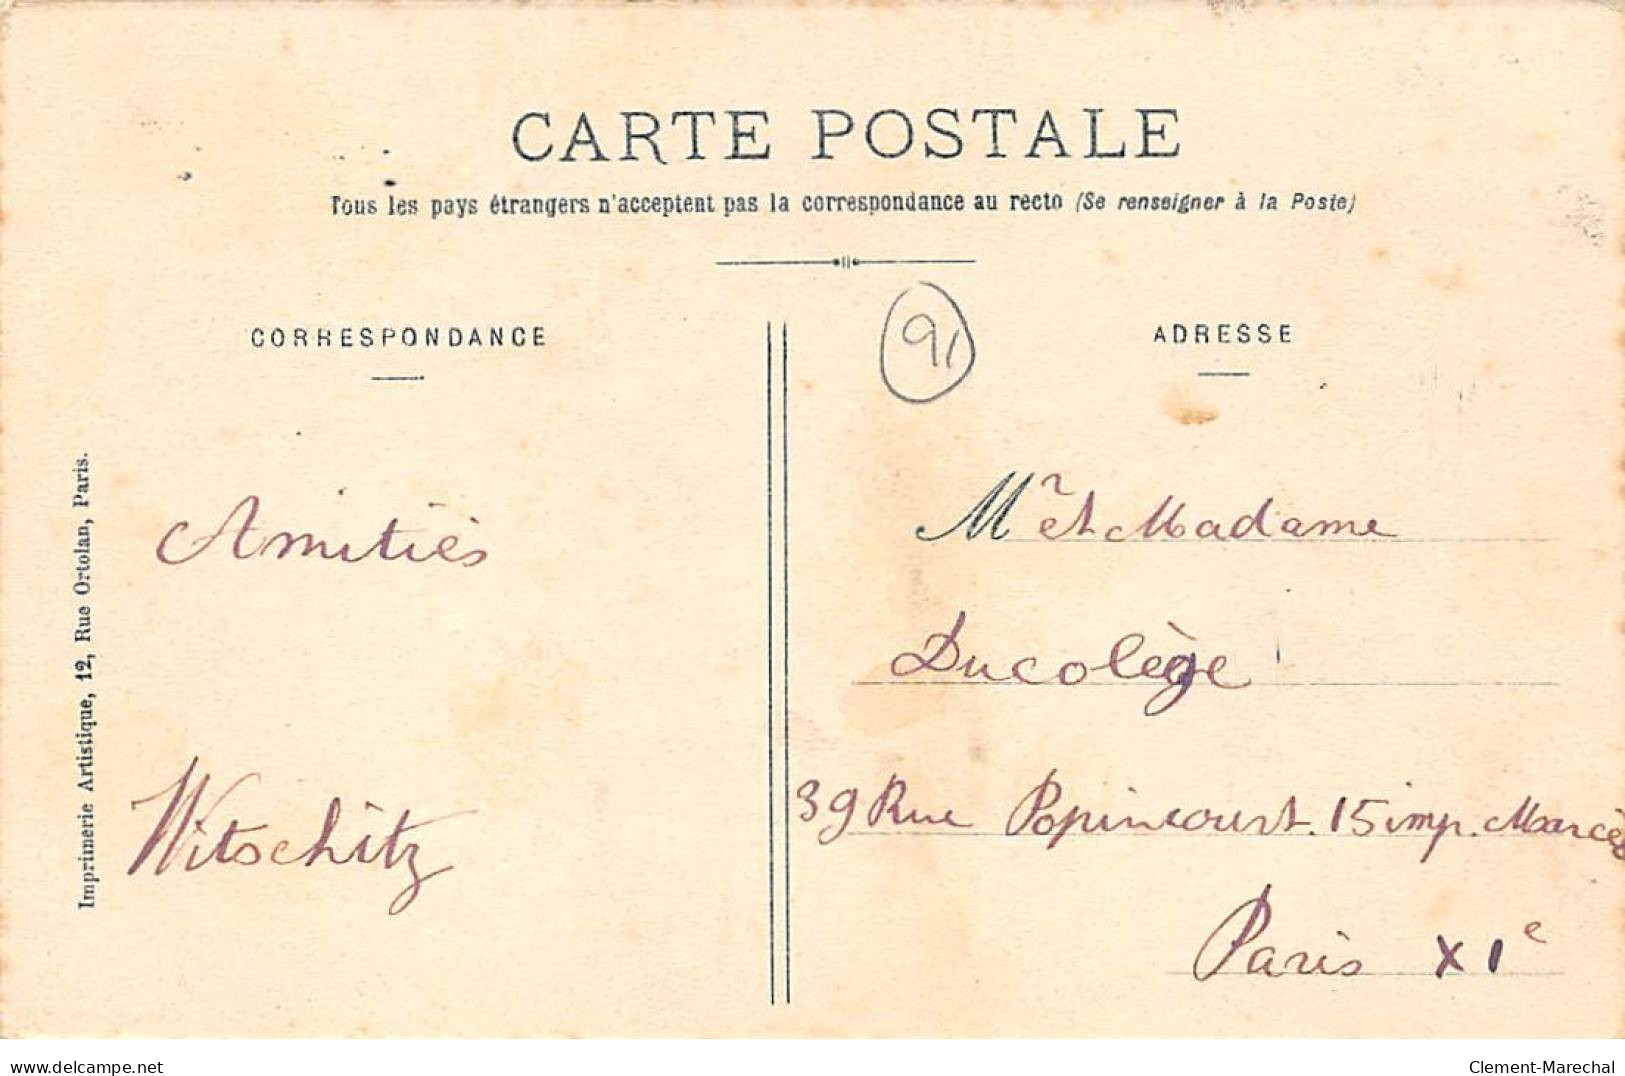 CARTE POSTALE
Tous les pays étrangers n'acceptent pas la correspondance au recto (Se renseigner à la Poste)
CORRESPONDANCE
91
ADRESSE
Imprimerie Artistique, 12, Rue Ortolan, Paris.
Amitiés
Witschitz
Mr et Madame
Ducolège
39 Rue Popincourt. 15 imp. Marcès
Paris XIe
delcampe.net
Clement-Marechal